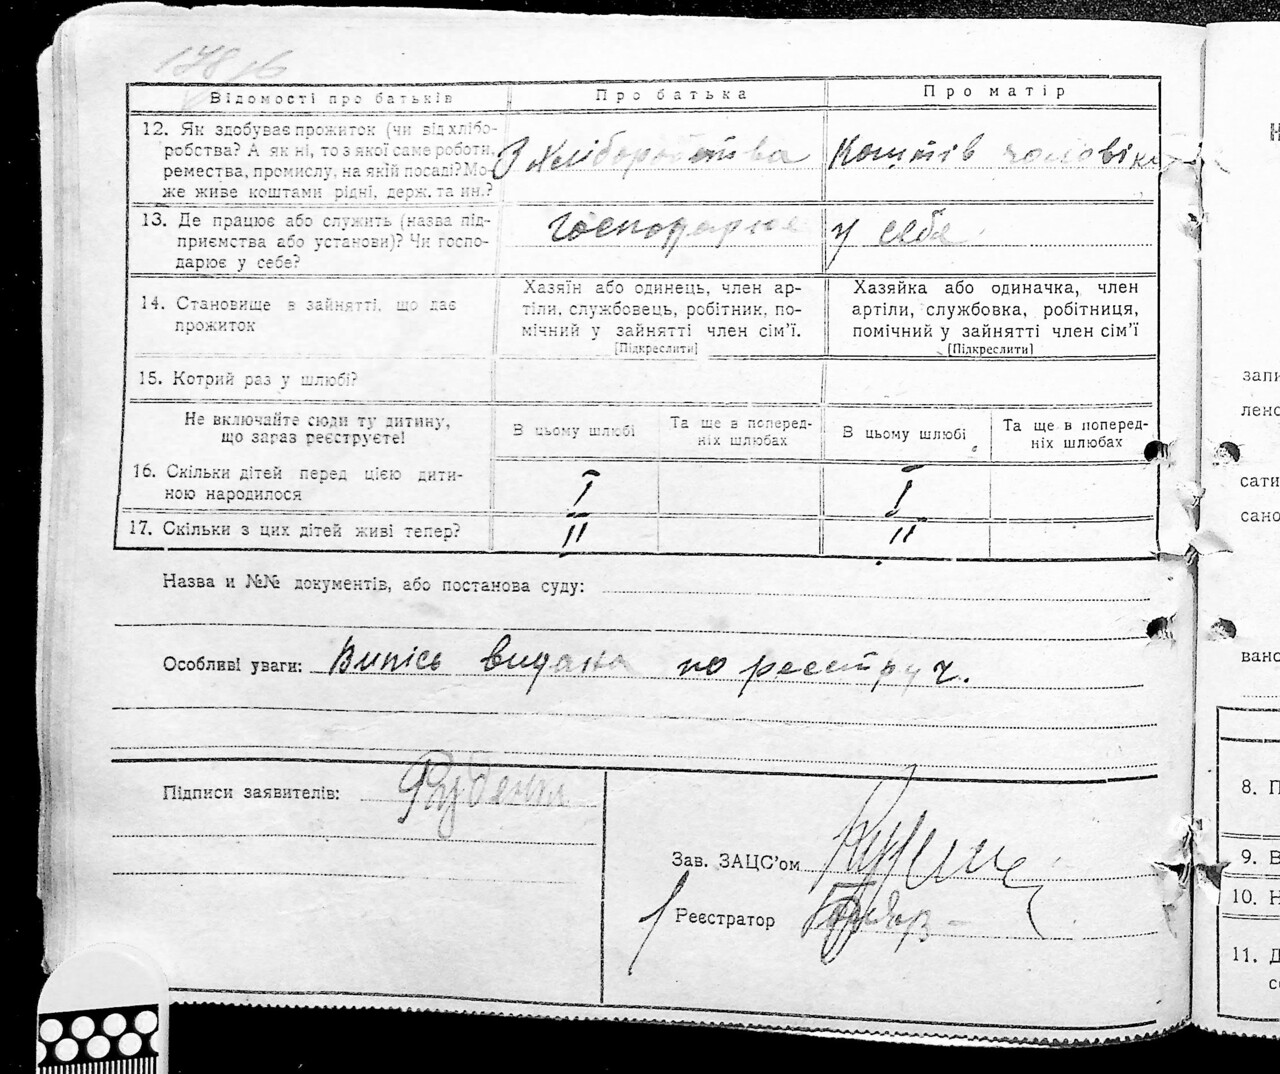 178 зб
Відомості про батьків
Про батька
Про матір
12. Як здобуває прожиток (чи від хлібо-
робства? А як ні, то з якої саме роботи,
ремества, промислу, на якій посаді? Мо-
же живе коштами рідні, держ. та ин.?
З хліборобства
Коштів чоловіка
13. Де працює або служить (назва під-
приємства або установи)? Чи госпо-
дарює у себе?
Господарює у себе
14. Становище в зайнятті, що дає
прожиток
Хазяїн або одинець, член ар-
тілі, службовець, робітник, по-
мічний у зайнятті член сім'ї.
[Підкреслити]
Хазяйка або одиначка, член
артілі, службовка, робітниця,
помічний у зайнятті член сім'ї
[Підкреслити]
15. Котрий раз у шлюбі?
Не включайте сюди ту дитину,
що зараз реєструєте!
В цьому шлюбі
Та ще в поперед-
ніх шлюбах
В цьому шлюбі
Та ще в поперед-
ніх шлюбах
16. Скільки дітей перед цією дити-
ною народилося
I
I
17. Скільки з цих дітей живі тепер?
II
II
Назва и №№ документів, або постанова суду:
Особливі уваги: Випісь видана по реєстру ч.
Підписи заявителів: Руденко
Зав. ЗАЦС'ом
Реєстратор
запи
лено
сати
сано
вано
8. П
9. В
10. Н
11. Д